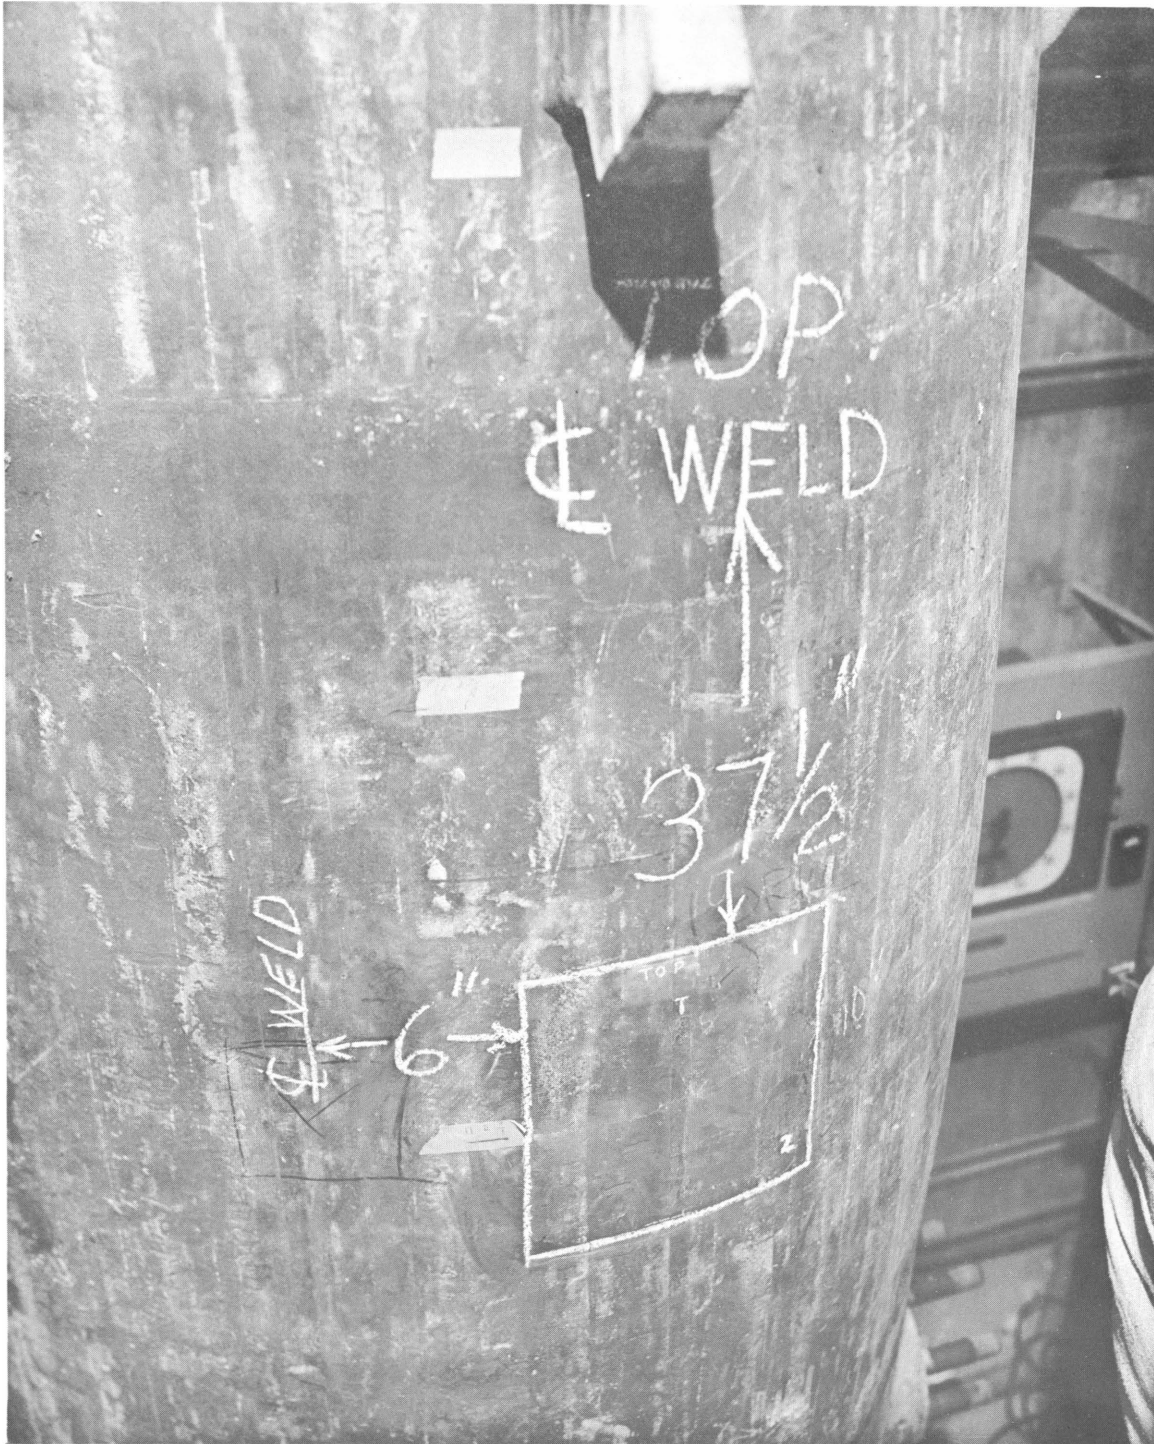 TOP
℄ WELD
37 1/2"
℄ WELD
6"
TOP
T
2